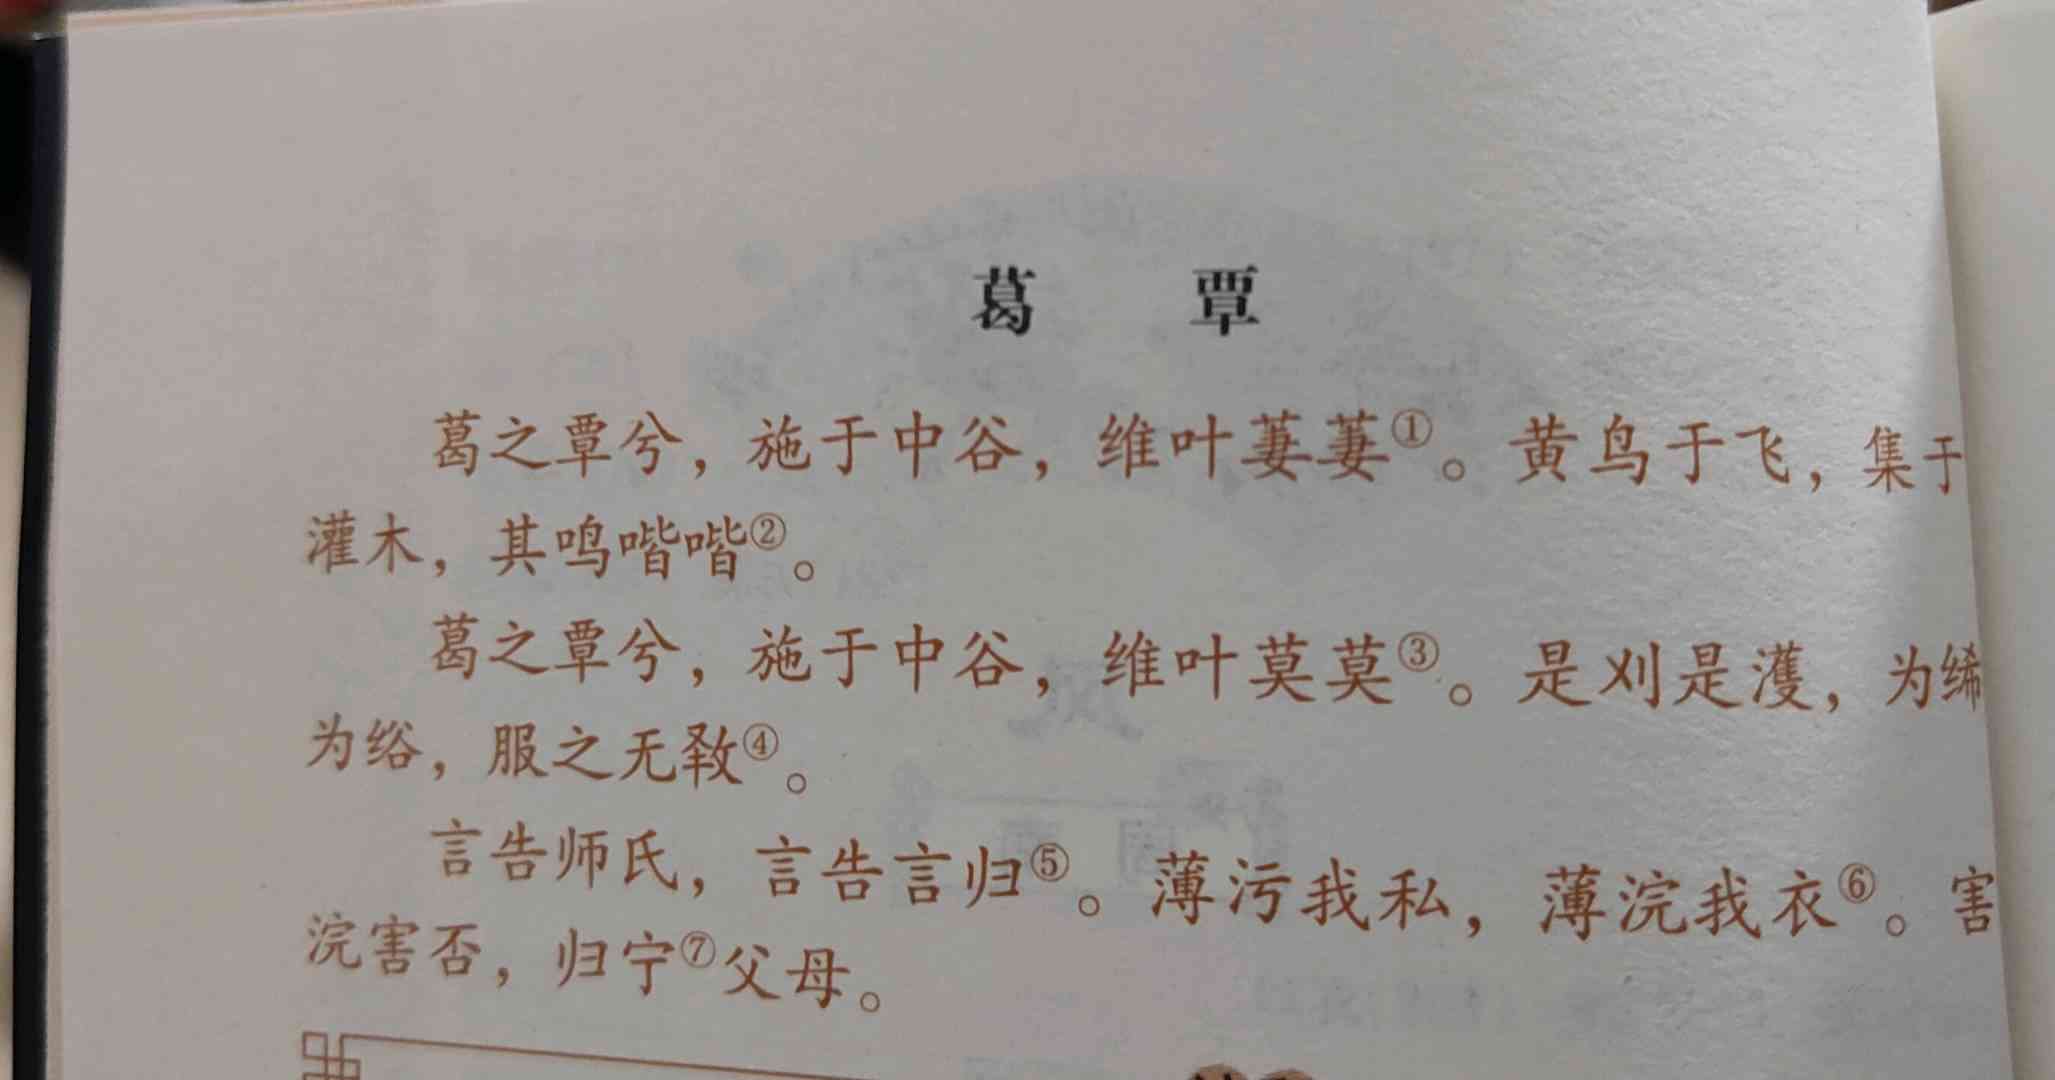 葛 覃
葛之覃兮，施于中谷，维叶萋萋①。黄鸟于飞，集于
灌木，其鸣喈喈②。
葛之覃兮，施于中谷，维叶莫莫③。是刈是濩，为𫄨
为绤，服之无斁④。
言告师氏，言告言归⑤。薄污我私，薄浣我衣⑥。害
浣害否，归宁⑦父母。